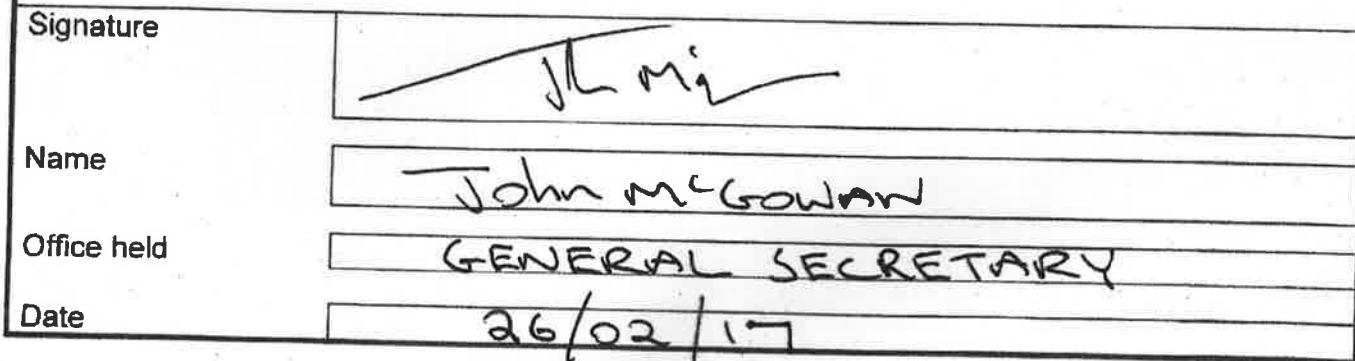 Signature
Name
John McGOWAN
Office held
GENERAL SECRETARY
Date
26/02/17